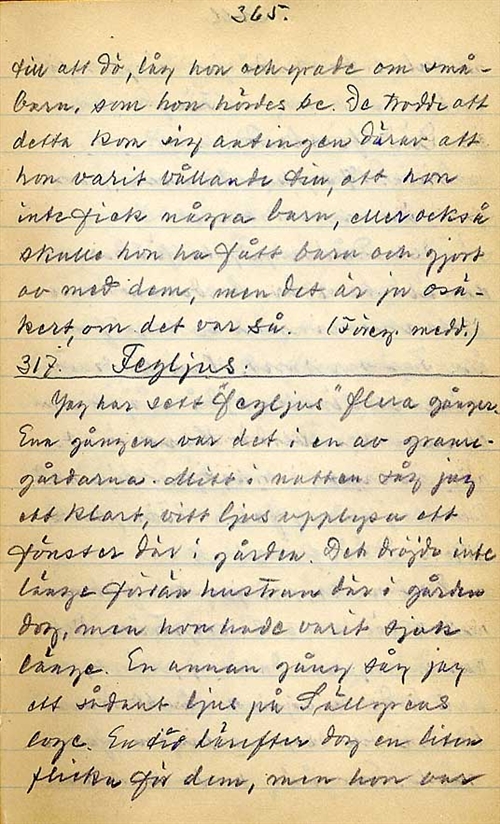 365.
till att dö, låg hon och gra̋de om små-
barn, som hon hördes se. De trodde att
detta kom sig antingen därav att
hon varit vållande till, att hon
inte fick några barn, eller också
skulle hon ha fått barn och gjort
av med dem, men det är ju osä-
kert, om det var så. (Föreg. medd.)
317. Fegljus.
Jag har sett "fegljus" flera gånger.
Ena gången var det i en av grann-
gårdarna. Mitt i natten såg jag
ett klart, vitt ljus upplysa ett
fönster där i gården. Det dröjde inte
länge förrän hustrun där i gården
dog, men hon hade varit sjuk
länge. En annan gång såg jag
ett sådant ljus på
loge. En tid därefter dog en liten
flicka för dem, men hon var